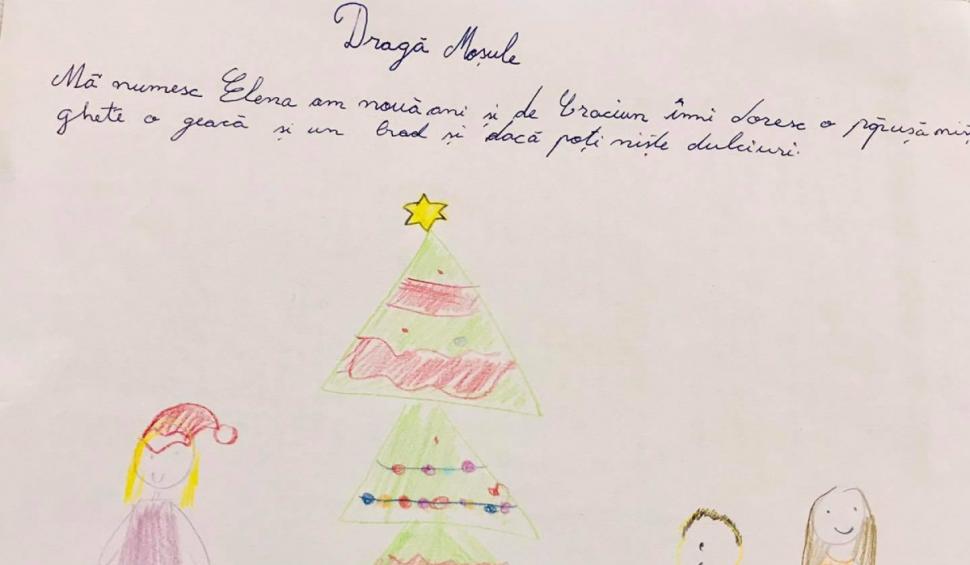 Dragă Moșule
Mă numesc Elena am nouă ani și de Craciun îmi doresc o păpușă niș
ghete o geacă și un brad și dacă poți niște dulciuri.